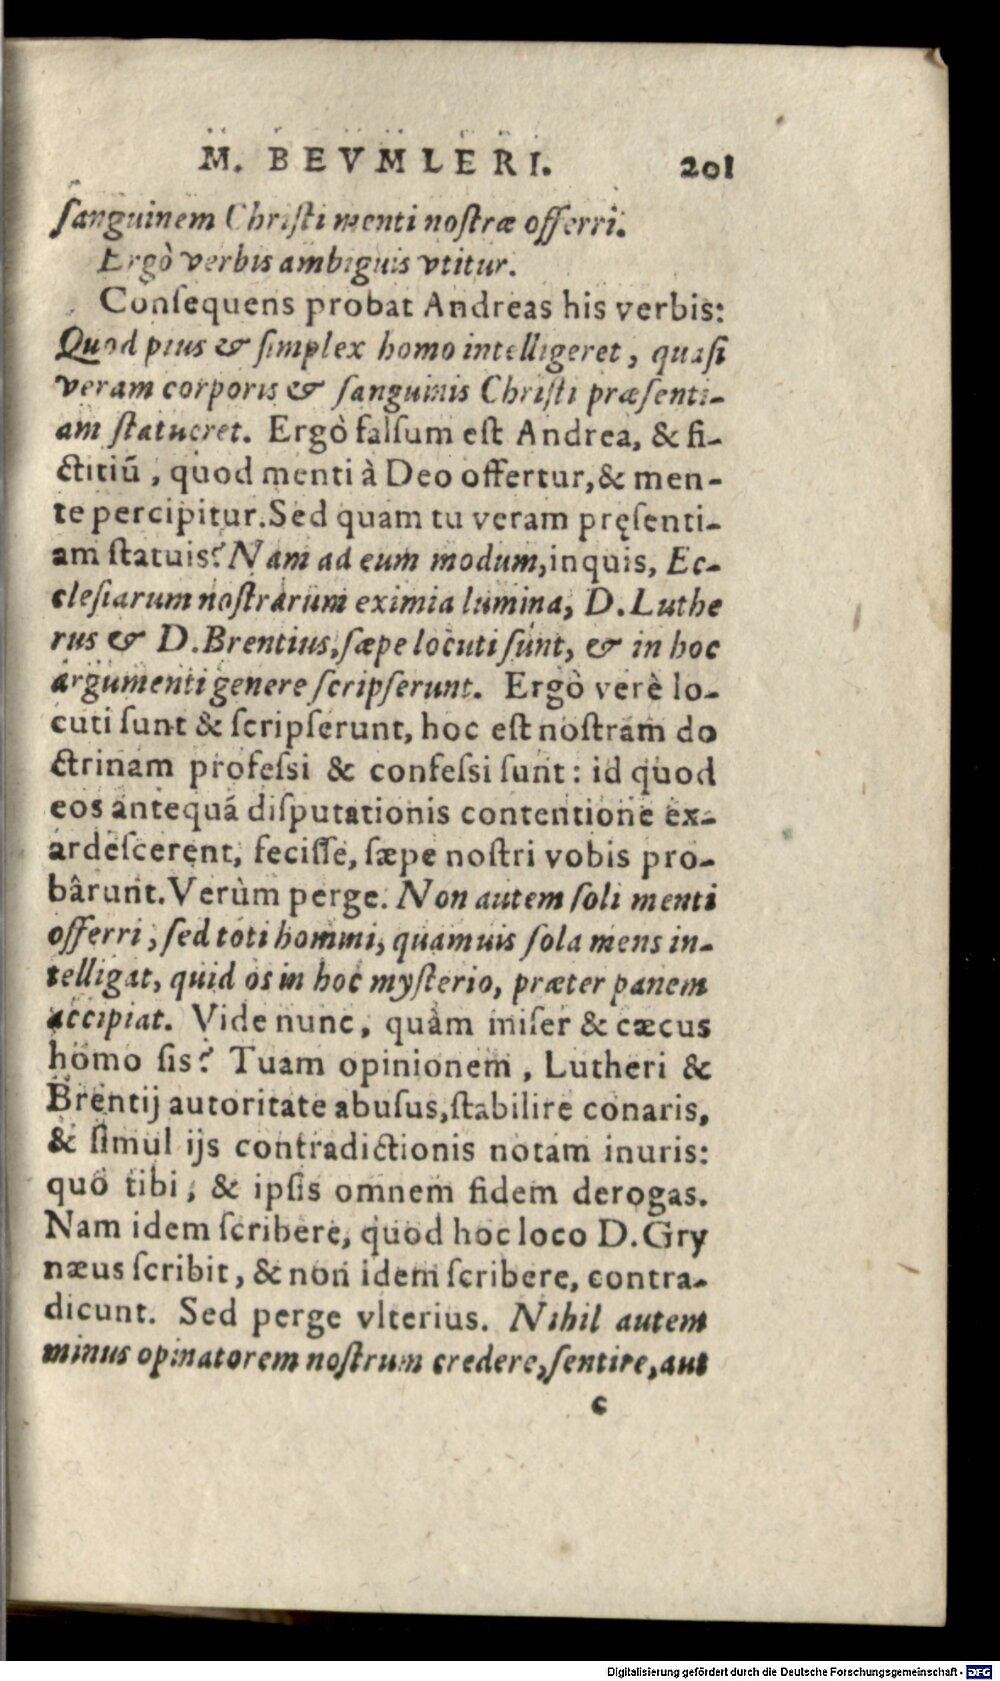 M. BEVMLERI. 201
ſanguinem Chriſti menti noſtræ offerri.
Ergò verbis ambiguis vtitur.
Conſequens probat Andreas his verbis:
Quod pius & ſimplex homo intelligeret, quaſi
veram corporis & ſanguinis Chriſti præſenti-
am ſtatueret. Ergò falſum eſt Andrea, & fi-
ctitiũ, quod menti à Deo offertur, & men-
te percipitur. Sed quam tu veram pręſenti-
am ſtatuis? Nam ad eum modum, inquis, Ec-
cleſiarum noſtrarum eximia lumina, D. Luthe
rus & D. Brentius, ſæpe locuti ſunt, & in hoc
argumenti genere ſcripſerunt. Ergò verè lo-
cuti ſunt & ſcripſerunt, hoc eſt noſtram do
ctrinam profeſsi & confeſsi ſunt: id quod
eos antequã diſputationis contentione ex-
ardeſcerent, feciſſe, ſæpe noſtri vobis pro-
bârunt. Verùm perge. Non autem ſoli menti
offerri, ſed toti homini, quamuis ſola mens in-
telligat, quid os in hoc myſterio, præter panem
accipiat. Vide nunc, quàm miſer & cæcus
homo ſis? Tuam opinionem, Lutheri &
Brentij autoritate abuſus, ſtabilire conaris,
& ſimul ijs contradictionis notam inuris:
quo tibi, & ipſis omnem fidem derogas.
Nam idem ſcribere, quod hoc loco D. Gry
næus ſcribit, & non idem ſcribere, contra-
dicunt. Sed perge vlterius. Nihil autem
minus opinatorem noſtrum credere, ſentire, aut
c
Digitalisierung gefördert durch die Deutsche Forschungsgemeinschaft - DFG